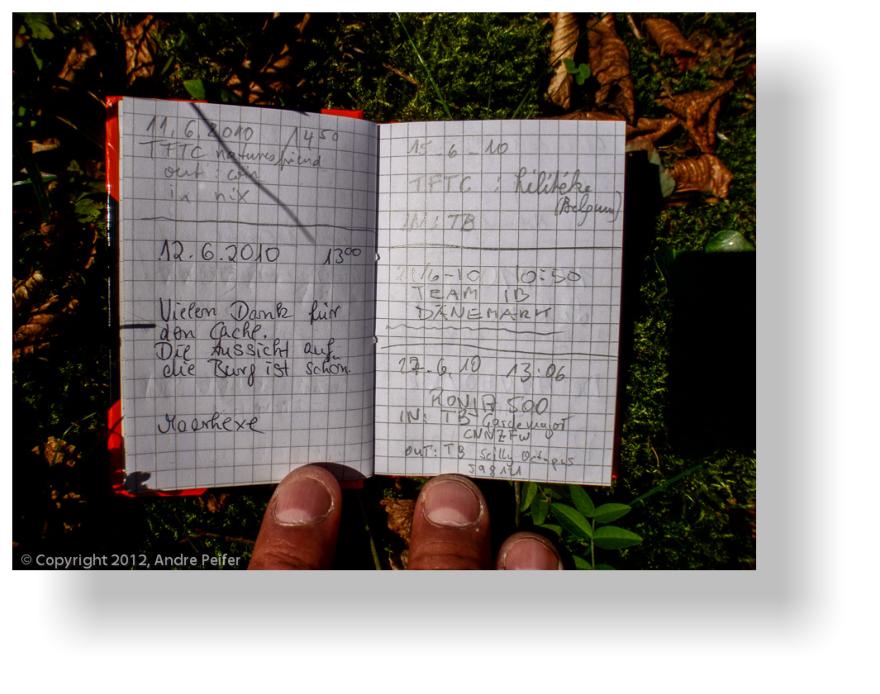 11.6.2010 14 50
TFTC naturesfriend
out: coin
in nix
12.6.2010 13 00
Vielen Dank für
den Cache.
Die Aussicht auf
die Burg ist schön.
Moorhexe
15-6-10
TFTC :
(Belgium)
IN: TB
/6-10 10:50
TEAM IB
DÄNEMARK
17.6.10 13:06
500
IN: TB
CNNZFW
OUT: TB Scilly Octopus
© Copyright 2012, Andre Peifer